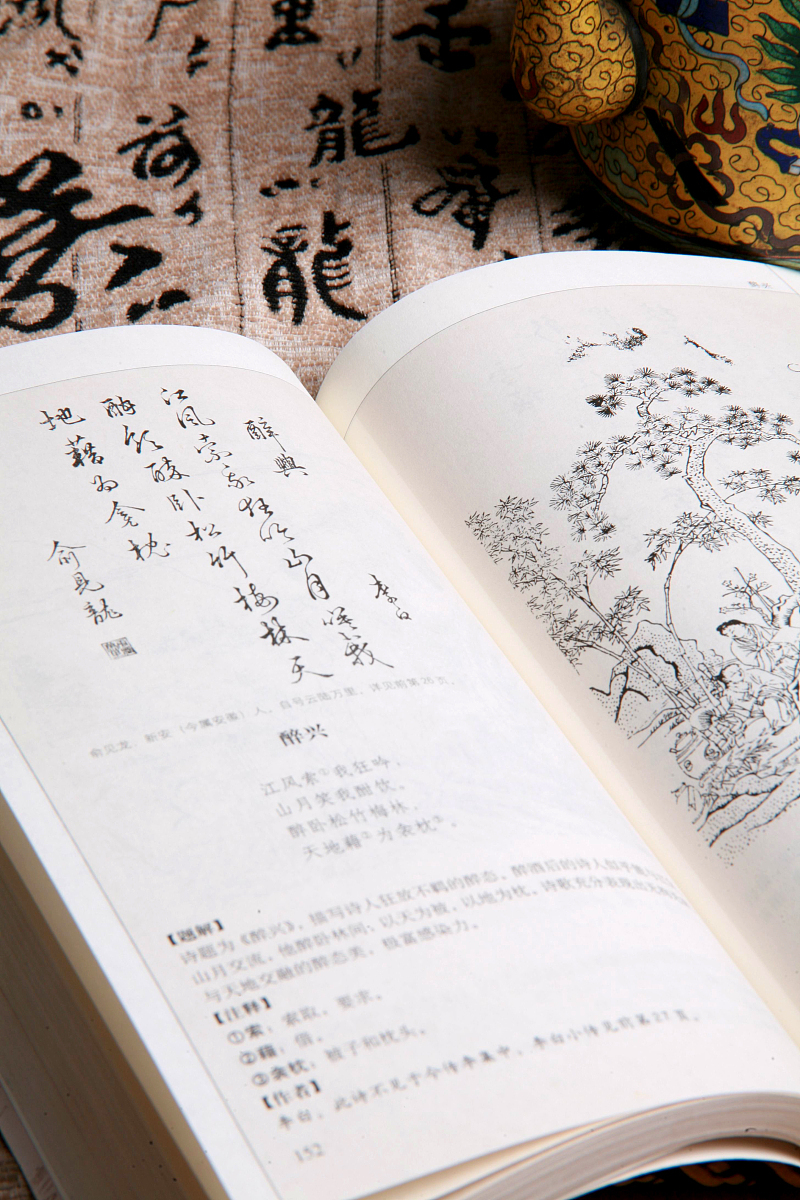 龍
龍
荷
醉興
李白
江風索我狂吟山月笑我
酣飲醉臥松竹梅林天
地藉為衾枕
俞見龍
俞见龙：新安（今属安徽）人，自号云陆万里，详见前第26页。
醉兴
江风索①我狂吟，
山月笑我酣饮。
醉卧松竹梅林，
天地藉②为衾枕③。
【题解】
诗题为《醉兴》，描写诗人狂放不羁的醉态，醉酒后的诗人似乎
山月交流，他醉卧林间；以天为被，以地为枕，诗歌充分表现出
与天地交融的醉态美，极富感染力。
【注释】
①索：索取，要求。
②藉：借。
③衾枕：被子和枕头。
【作者】
李白，此诗不见于今传李集中，李白小传见前第27页。
152